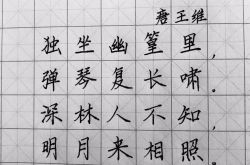 唐王维
独坐幽篁里，
弹琴复长啸。
深林人不知，
明月来相照。